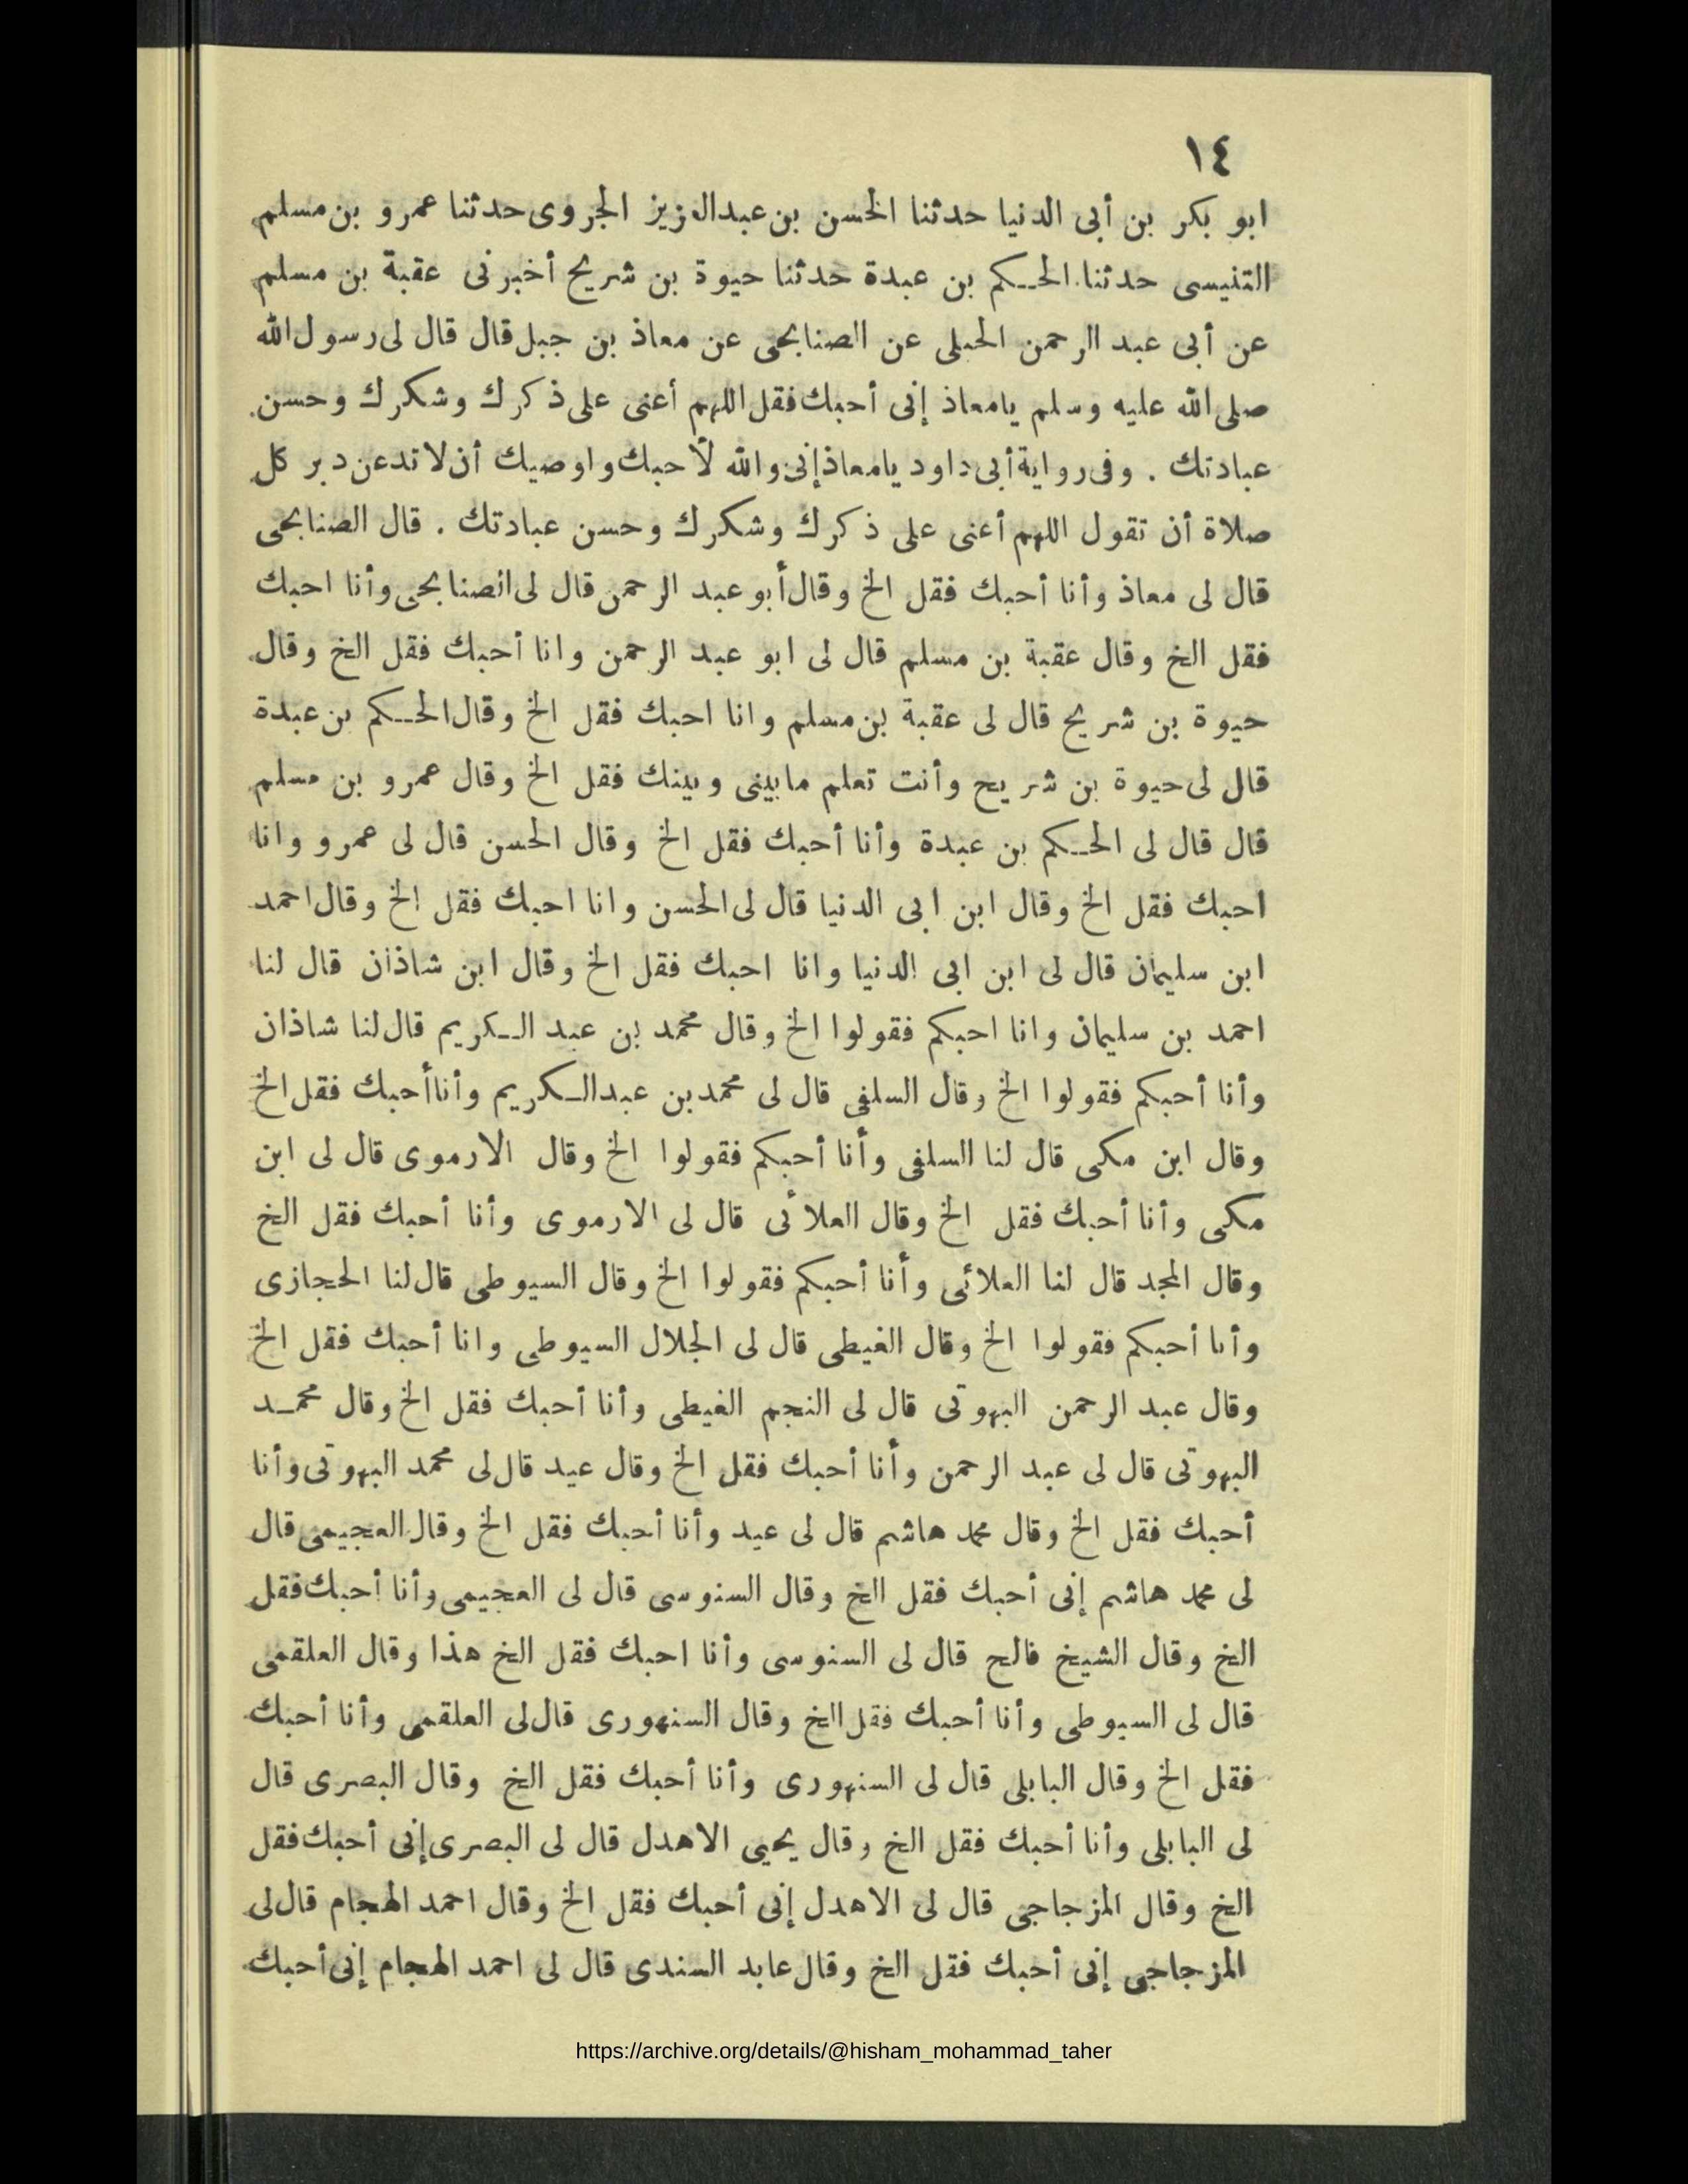 ١٤
ابو بكر بن أبى الدنيا حدثنا الحسن بن عبدالعزيز الجروى حدثنا عمرو بن مسلم
التنيسى حدثنا الحـكم بن عبدة حدثنا حيوة بن شريح أخبرنى عقبة بن مسلم
عن أبى عبد الرحمن الحبلى عن الصنابحى عن معاذ بن جبل قال قال لى رسول الله
صلى الله عليه وسلم يامعاذ إنى أحبك فقل اللهم أعنى على ذكرك وشكرك وحسن
عبادتك . وفى رواية أبى داود يامعاذ إنى والله لأحبك واوصيك أن لاتدعن دبر كل
صلاة أن تقول اللهم أعنى على ذكرك وشكرك وحسن عبادتك . قال الصنابحى
قال لى معاذ وأنا أحبك فقل الخ وقال أبو عبد الرحمن قال لى الصنابحى وأنا احبك
فقل الخ وقال عقبة بن مسلم قال لى ابو عبد الرحمن وانا أحبك فقل الخ وقال
حيوة بن شريح قال لى عقبة بن مسلم وانا احبك فقل الخ وقال الحـكم بن عبدة
قال لى حيوة بن شريح وأنت تعلم مابينى وبينك فقل الخ وقال عمرو بن مسلم
قال قال لى الحـكم بن عبدة وأنا أحبك فقل الخ وقال الحسن قال لى عمرو وانا
احبك فقل الخ وقال ابن ابى الدنيا قال لى الحسن وانا احبك فقل الخ وقال احمد
ابن سليمان قال لى ابن ابى الدنيا وانا احبك فقل الخ وقال ابن شاذان قال لنا
احمد بن سليمان وانا احبكم فقولوا الخ وقال محمد بن عبد الـكريم قال لنا شاذان
وأنا أحبكم فقولوا الخ وقال السلفى قال لى محمد بن عبدالـكريم وأنا أحبك فقل الخ
وقال ابن مكى قال لنا السلفى وأنا أحبكم فقولوا الخ وقال الارموى قال لى ابن
مكى وأنا أحبك فقل الخ وقال العلائى قال لى الارموى وأنا أحبك فقل الخ
وقال المجد قال لنا العلائى وأنا أحبكم فقولوا الخ وقال السيوطى قال لنا الحجازى
وأنا أحبكم فقولوا الخ وقال الغيطى قال لى الجلال السيوطى وانا أحبك فقل الخ
وقال عبد الرحمن البهوتى قال لى النجم الغيطى وأنا أحبك فقل الخ وقال محمـد
البهوتى قال لى عبد الرحمن وأنا أحبك فقل الخ وقال عيد قال لى محمد البهوتى وأنا
أحبك فقل الخ وقال محمد هاشم قال لى عيد وأنا أحبك فقل الخ وقال العجيمى قال
لى محمد هاشم إنى أحبك فقل الخ وقال السنوسى قال لى العجيمى وأنا أحبك فقل
الخ وقال الشيخ فالح قال لى السنوسى وأنا احبك فقل الخ هذا وقال العلقمى
قال لى السيوطى وأنا أحبك فقل الخ وقال السنهورى قال لى العلقمى وأنا أحبك
فقل الخ وقال البابلى قال لى السنهورى وأنا أحبك فقل الخ وقال البصرى قال
لى البابلى وأنا أحبك فقل الخ وقال يحيى الاهدل قال لى البصرى إنى أحبك فقل
الخ وقال المزجاجى قال لى الاهدل إنى أحبك فقل الخ وقال احمد الهجام قال لى
المزجاجى إنى أحبك فقل الخ وقال عابد السندى قال لى احمد الهجام إنى أحبك
https://archive.org/details/@hisham_mohammad_taher